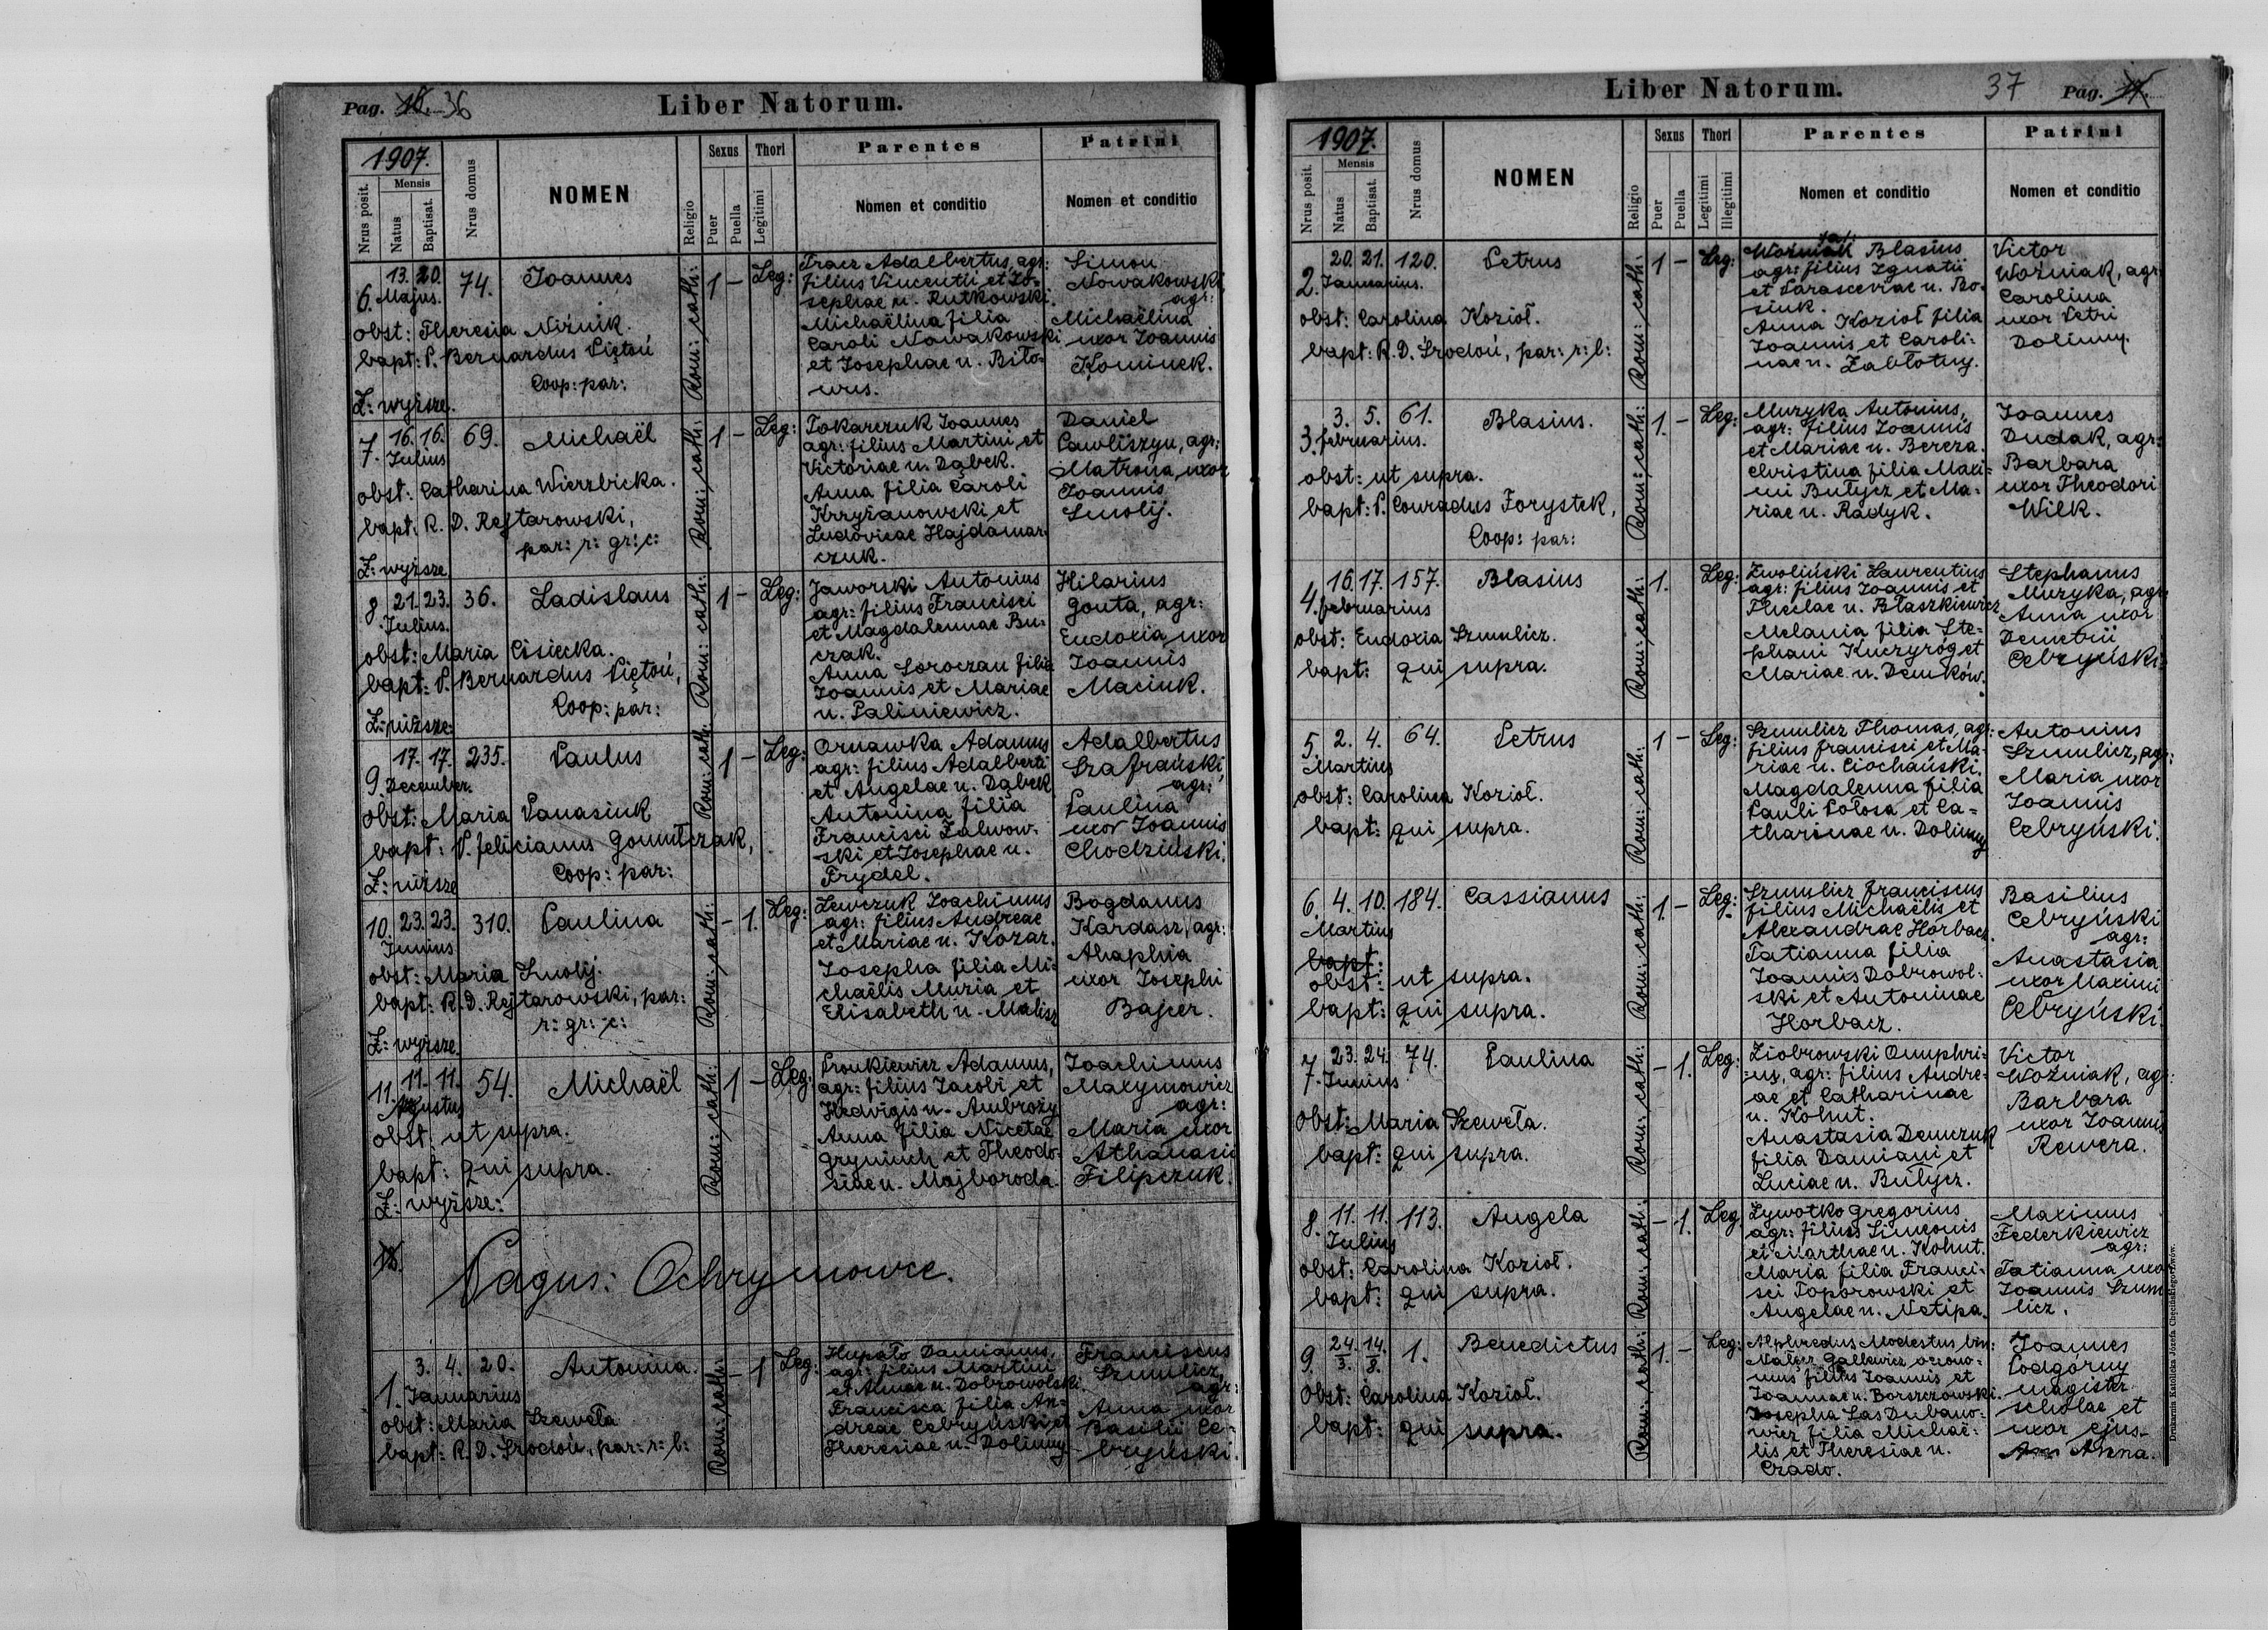 Pag. 18. 36
Liber Natorum.
1907.
Nrus posit.
Mensis
Natus
Baptisat.
Nrus domus
NOMEN
Religio
Sexus
Puer
Puella
Thori
Legitimi
Parentes
Nomen et conditio
Patrini
Nomen et conditio
6. 13. 20. Majus. 74. Joannes
Rom: cath: 1 – Leg:
obst: Theresia Niżnik.
bapt: P. Bernardus Piętoń
Coop: par:
Z: wyższe.
Tracz Adalbertus, agr:
filius Vincentii et Jo-
sephae n. Rutkowski.
Michaëlina filia
Caroli Nowakowski
et Josephae n. Biło-
wus.
Simon
Nowakowski
agr:
Michaëlina
uxor Joannis
Kominek.
7. 16. 16. Julius 69. Michaël
Rom: cath: 1 – Leg:
obst: Catharina Wierzbicka.
bapt: R. D. Rejtarowski,
par: r: gr: c:
Z: wyższe
Tokarczuk Joannes
agr: filius Martini et
Victoriae n. Dąbek.
Anna filia Caroli
Krzyżanowski et
Ludovicae Hajdamar-
czuk.
Daniel
Pawliszyn, agr:
Matrona uxor
Joannis
Smolij.
8. 21. 23. Julius. 36. Ladislaus
Rom: cath: 1 – Leg:
obst: Maria Cisiecka.
bapt: P. Bernardus Piętoń,
Coop: par:
Z: niższe:
Jaworski Antonius
agr: filius Francisci
et Magdalennae Bu-
czak.
Anna Soroczan filia
Joannis et Mariae
n. Paliniewicz.
Hilarius
Gouta, agr:
Eudoxia uxor
Joannis
Maciuk.
9. 17. 17. December. 235. Paulus
Rom: cath. 1 – Leg:
obst: Maria Panasiuk
bapt: P. Felicianus Gomułczak,
Coop: par:
Z: niższe
Ornawka Adamus
agr: filius Adalberti
et Angelae n. Dąbek
Antonina filia
Francisci Zalwow-
ski et Josephae n.
Frydel.
Adalbertus
Szafrański,
agr:
Paulina
uxor Joannis
Chodziński.
10. 23. 23. Junius 310. Paulina
Rom: cath: – 1. Leg:
obst: Maria Smolij.
bapt: R. D. Rejtarowski, par:
r: gr: c:
Z: wyższe.
Lewczuk Joachimus
agr: filius Andreae
et Mariae n. Kozar.
Josepha filia Mi-
chaëlis Muria et
Elisabeth n. Malisz
Bogdanus
Kardasz, agr:
Ahaphia
uxor Josephi
Bajcer.
11. 11. 11. Augustus 54. Michaël
Rom: cath: 1 – Leg:
obst: ut supra.
bapt: qui supra.
Z: wyższe:
Pronkiewicz Adamus,
agr: filius Jacobi et
Hedvigis n. Ambroży
Anna filia Nicetae
Gryniuch et Theodo-
siae n. Majboroda.
Joachimus
Maxymowicz
agr:
Maria uxor
Athanasii
Filipczuk.
Pagus: Ochrymowce.
1. 3. 4. Januarius 20. Antonina.
Rom: cath: – 1 Leg:
obst: Maria Szeweła
bapt: R. D. Srodoń, par: r: l:
Hupało Damianus,
agr: filius Martini
et Annae n. Dobrowolski.
Francisca filia An-
dreae Cebryński et
Theresiae n. Dolinny
Franciscus
Szmulicz,
agr:
Anna uxor
Basilii Ce-
bryński.
Liber Natorum.
37 Pag.
1907.
Nrus posit.
Mensis
Natus
Baptisat.
Nrus domus
NOMEN
Religio
Sexus
Puer
Puella
Thori
Legitimi
Illegitimi
Parentes
Nomen et conditio
Patrini
Nomen et conditio
2. 20. 21. Januarius. 120. Petrus
Rom: cath: 1 – Leg:
obst: Carolina Kozioł.
bapt: R. D. Srodoń, par: r: l:
Woźniak Blasius
agr: filius Ignatii
et Parasceviae n. Bo-
siuk.
Anna Kozioł filia
Joannis et Caroli-
nae n. Zabłotny.
Victor
Woźniak, agr:
Carolina
uxor Petri
Dolinny.
3. 3. 5. februarius. 61. Blasius.
Rom: cath: 1. – Leg:
obst: ut supra.
bapt: P. Conradus Forystek,
Coop: par:
Muzyka Antonius,
agr: filius Joannis
et Mariae n. Bereza.
Christina filia Maxi-
mi Bułycz et Ma-
riae n. Radyk.
Joannes
Dudak, agr:
Barbara
uxor Theodori
Wilk.
4. 16. 17. februarius 157. Blasius
Rom: cath: 1. Leg:
obst: Eudoxia Szmulicz.
bapt: qui supra.
Zwoliński Laurentius
agr: filius Joannis et
Theclae n. Błaszkiewicz
Melania filia Ste-
phani Kuczyróg et
Mariae n. Demków.
Stephanus
Muzyka, agr:
Anna uxor
Demetrii
Cebryński.
5. 2. 4. Martius 64. Petrus
Rom: cath: 1 – Leg:
obst: Carolina Kozioł.
bapt: qui supra.
Szmulicz Thomas, agr:
filius francisci et Ma-
riae n. Ciochański.
Magdalenna filia
Pauli Połosa et Ca-
tharinae n. Dolinny
Antonius
Szmulicz, agr:
Maria uxor
Joannis
Cebryński.
6. 4. 10. Martius 184. Cassianus
Rom: cath: 1. – Leg:
bapt:
obst: ut supra.
bapt: qui supra.
Szmulicz franciscus
filius Michaëlis et
Alexandrae Horbacz.
Tatianna filia
Joannis Dobrowol-
ski et Antoninae
Horbacz.
Basilius
Cebryński
agr:
Anastasia
uxor Maximi
Cebryński.
7. 23. 24. Junius 74. Paulina
Rom: cath: – 1. Leg:
obst: Maria Szeweła.
bapt: qui supra.
Ziobrowski Onuphri-
us, agr: filius Andre-
ae et Catharinae
n. Kohut.
Anastasia Demczuk
filia Damiani et
Luciae n. Bułycz.
Victor
Woźniak, agr:
Barbara
uxor Joannis
Rewera.
8. 11. 11. Julius 113. Angela
Rom: cath: – 1. Leg.
obst: Carolina Kozioł.
bapt: qui supra.
Zywotko Gregorius
agr: filius Simeonis
et Marthae n. Kohut.
Maria filia Franci-
sci Toporowski et
Angelae n. Netipa.
Maximus
Federkiewicz
agr:
Tatianna uxor
Joannis Szmu-
licz.
9. 24/3. 14/8. 1. Benedictus
Rom: cath: 1. – Leg:
Obst: Carolina Kozioł.
bapt: qui supra.
Alphredus Modestus bin:
Galkewicz oecono-
mus filius Joannis et
Joannae n. Borszczowski.
Josepha Las Dubano-
wicz filia Michaë-
lis et Theresiae n.
Czado.
Joannes
Podgórny
magister
scholae et
uxor ejus
Anna.
Drukarnia Katolicka Józefa Chęcińskiego Lwów.